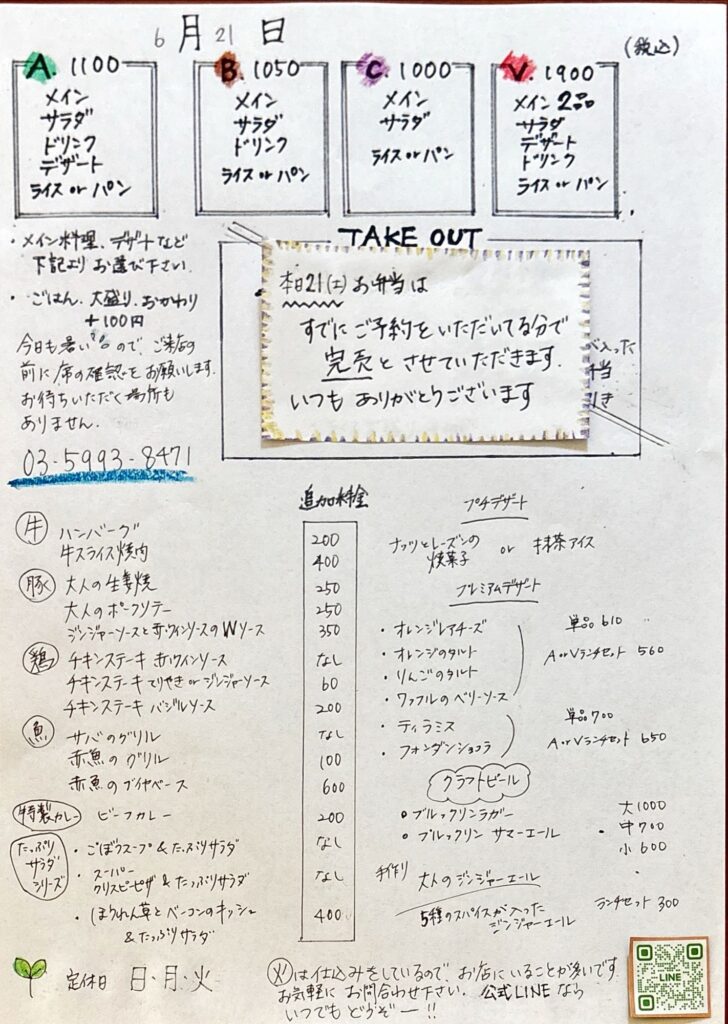 6月21日
(税込)
A. 1100
メイン
サラダ
ドリンク
デザート
ライス or パン
B. 1050
メイン
サラダ
ドリンク
ライス or パン
C 1000
メイン
サラダ
ライス or パン
V. 1900
メイン 2品
サラダ
デザート
ドリンク
ライス or パン
・メイン料理、デザートなど
下記より お選び下さい.
・ごはん、大盛り、おかわり
+100円
今日も暑いので、ご来店の
前に席の確認をお願いします.
お待ちいただく場所も
ありません.
03-5993-8471
TAKE OUT
本日21(土)お弁当は
すでにご予約をいただいてる分で
完売とさせていただきます.
いつも ありがとうございます
入った
弁当
引き
追加料金
牛 ハンバーグ 200
牛スライス焼肉 400
豚 大人の生姜焼 250
大人のポークソテー 250
ジンジャーソースと赤ワインソースのWソース 350
鶏 チキンステーキ 赤ワインソース なし
チキンステーキ てりやき or ジンジャーソース 60
チキンステーキ バジルソース 200
魚 サバのグリル なし
赤魚のグリル 100
赤魚のブイヤベース 600
特製カレー ビーフカレー 200
たっぷりサラダシリーズ
・ごぼうスープ & たっぷりサラダ なし
・スーパー
クリスピーピザ & たっぷりサラダ なし
・ほうれん草とベーコンのキッシュ 400
& たっぷりサラダ
プチデザート
ナッツとレーズンの
焼菓子 or 抹茶アイス
プレミアムデザート
・オレンジレアチーズ
・オレンジのタルト
・りんごのタルト
・ワッフルのベリーソース
単品 610
A or Vランチセット 560
・ティラミス
・フォンダンショコラ
単品 700
A or Vランチセット 650
クラフトビール
ブルックリンラガー
ブルックリン サマーエール
大 1000
中 700
小 600
手作り 大人のジンジャーエール
5種のスパイスが入った
ジンジャーエール
ランチセット 300
定休日 日・月・火
火は仕込みをしているので、お店にいることが多いです
お気軽に お問合わせ下さい. 公式LINEなら
いつでも どうぞー!!
LINE